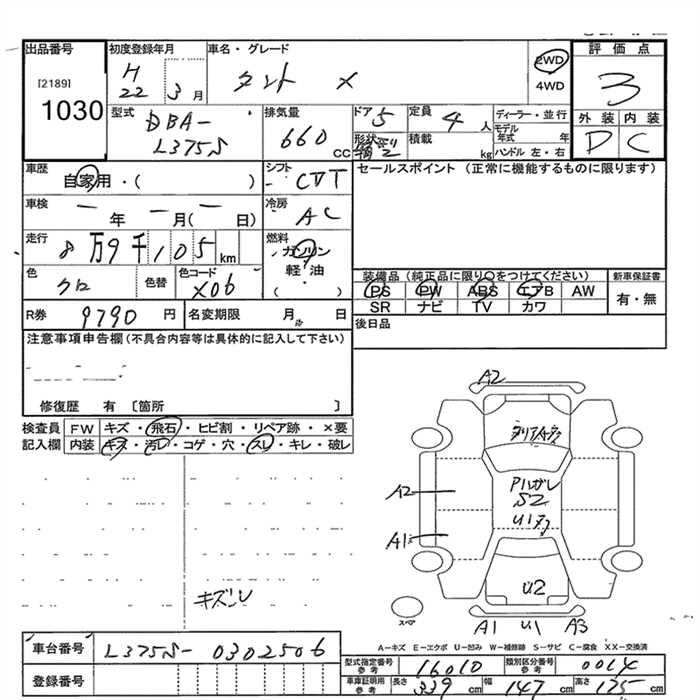 出品番号 初度登録年月 車名・グレード 評価点
[2189] H 22 3月 タント X 2WD 4WD 3
1030
型式 DBA- L375S 排気量 660 CC ドア 5 定員 4人 ディーラー・並行 外装 内装
形状 積載 kg モデル年式 年 ハンドル 左・右 D C
車歴 自家用・( ) シフト CVT セールスポイント (正常に機能するものに限ります)
車検 年 月( 日) 冷房 AC
走行 8万9千105km 燃料 ガソリン 軽油 ( )
色 クロ 色替 色コード X06 装備品(純正品に限り○をつけてください) 新車保証書
PS PW ABS エアB AW 有・無
SR ナビ TV カワ
R券 9790円 名変期限 月 日 後日品
注意事項申告欄(不具合内容等は具体的に記入して下さい)
修復歴 有 〔箇所 〕
検査員 FW キズ・飛石・ヒビ割・リペア跡・×要
記入欄 内装 キズ・汚レ・コゲ・穴・スレ・キレ・破レ
A2
A2
S2
A1
U2
A1 U1 A3
スペア
A－キズ E－エクボ U－凹み W－補修跡 S－サビ C－腐食 XX－交換済
車台番号 L375S-0302506 型式指定番号 参考 16010 類別区分番号 参考 0014
登録番号 車庫証明用 参考 長さ 339cm 幅 147cm 高さ 175cm